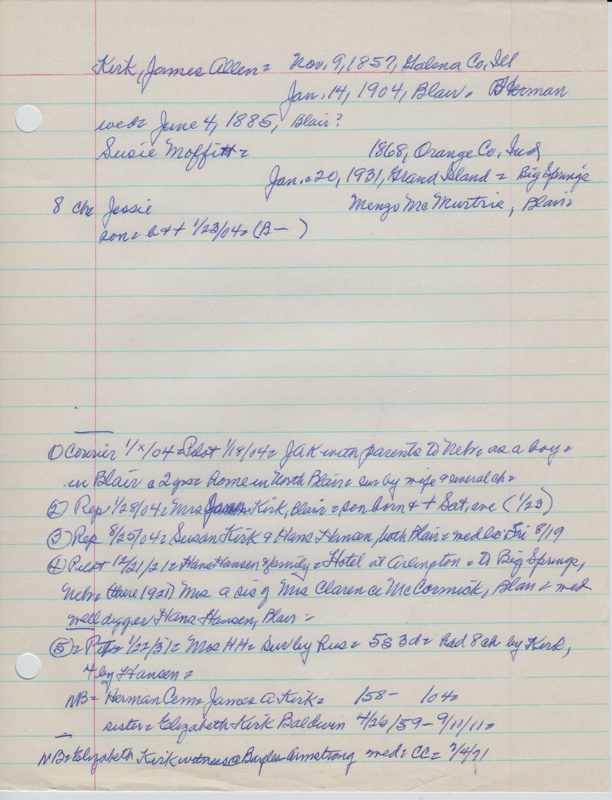 Kirk, James Allen = Nov. 9, 1857, Galena Co, Ill
Jan. 14, 1904, Blair = Herman
wed = June 4, 1885, Blair?
Susie Moffitt = 1868, Orange Co, Ind
Jan. 20, 1931, Grand Island = Big Springs
8 ch = Jessie Menzo McMurtrie, Blair =
son = b + † 1/23/04 = (B — )
① Courier 1/x/04 = Pilot 1/18/04 = JAK with parents to Nebr as a boy =
in Blair c 2 yrs = home in North Blair = sur by wife & several ch =
② Rep 1/28/04 = Mrs Kirk, Blair = son born + † Sat, eve (1/23)
③ Rep 8/25/04 = Susan Kirk & Hans Hansen, both Blair = med Fri 8/19
④ Pilot 12/21/21 = Hans Hansen & family = Hotel at Arlington = to Big Springs,
Nebr = (there 1921) Mrs a sis of Mrs Clarence McCormick, Blair = med
well digger Hans Hansen, Blair =
⑤ = 1/22/31 = Mrs HH = sur by hus = 5s 3d = had 8 ch by Kirk,
4 by Hansen =
NB = Herman Cem = James A Kirk = 158 - 104 =
sister = Elizabeth Kirk Baldwin 4/26/59 - 9/11/11 =
NB = Elizabeth Kirk witness @ Bayles-Armstrong med = CC = 7/4/71